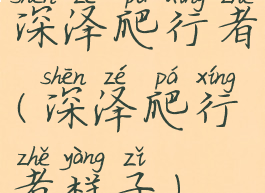 shēn zé pá xíng zhě
深泽爬行者
shēn zé pá xíng
(深泽爬行
zhě yàng zǐ
者样子)